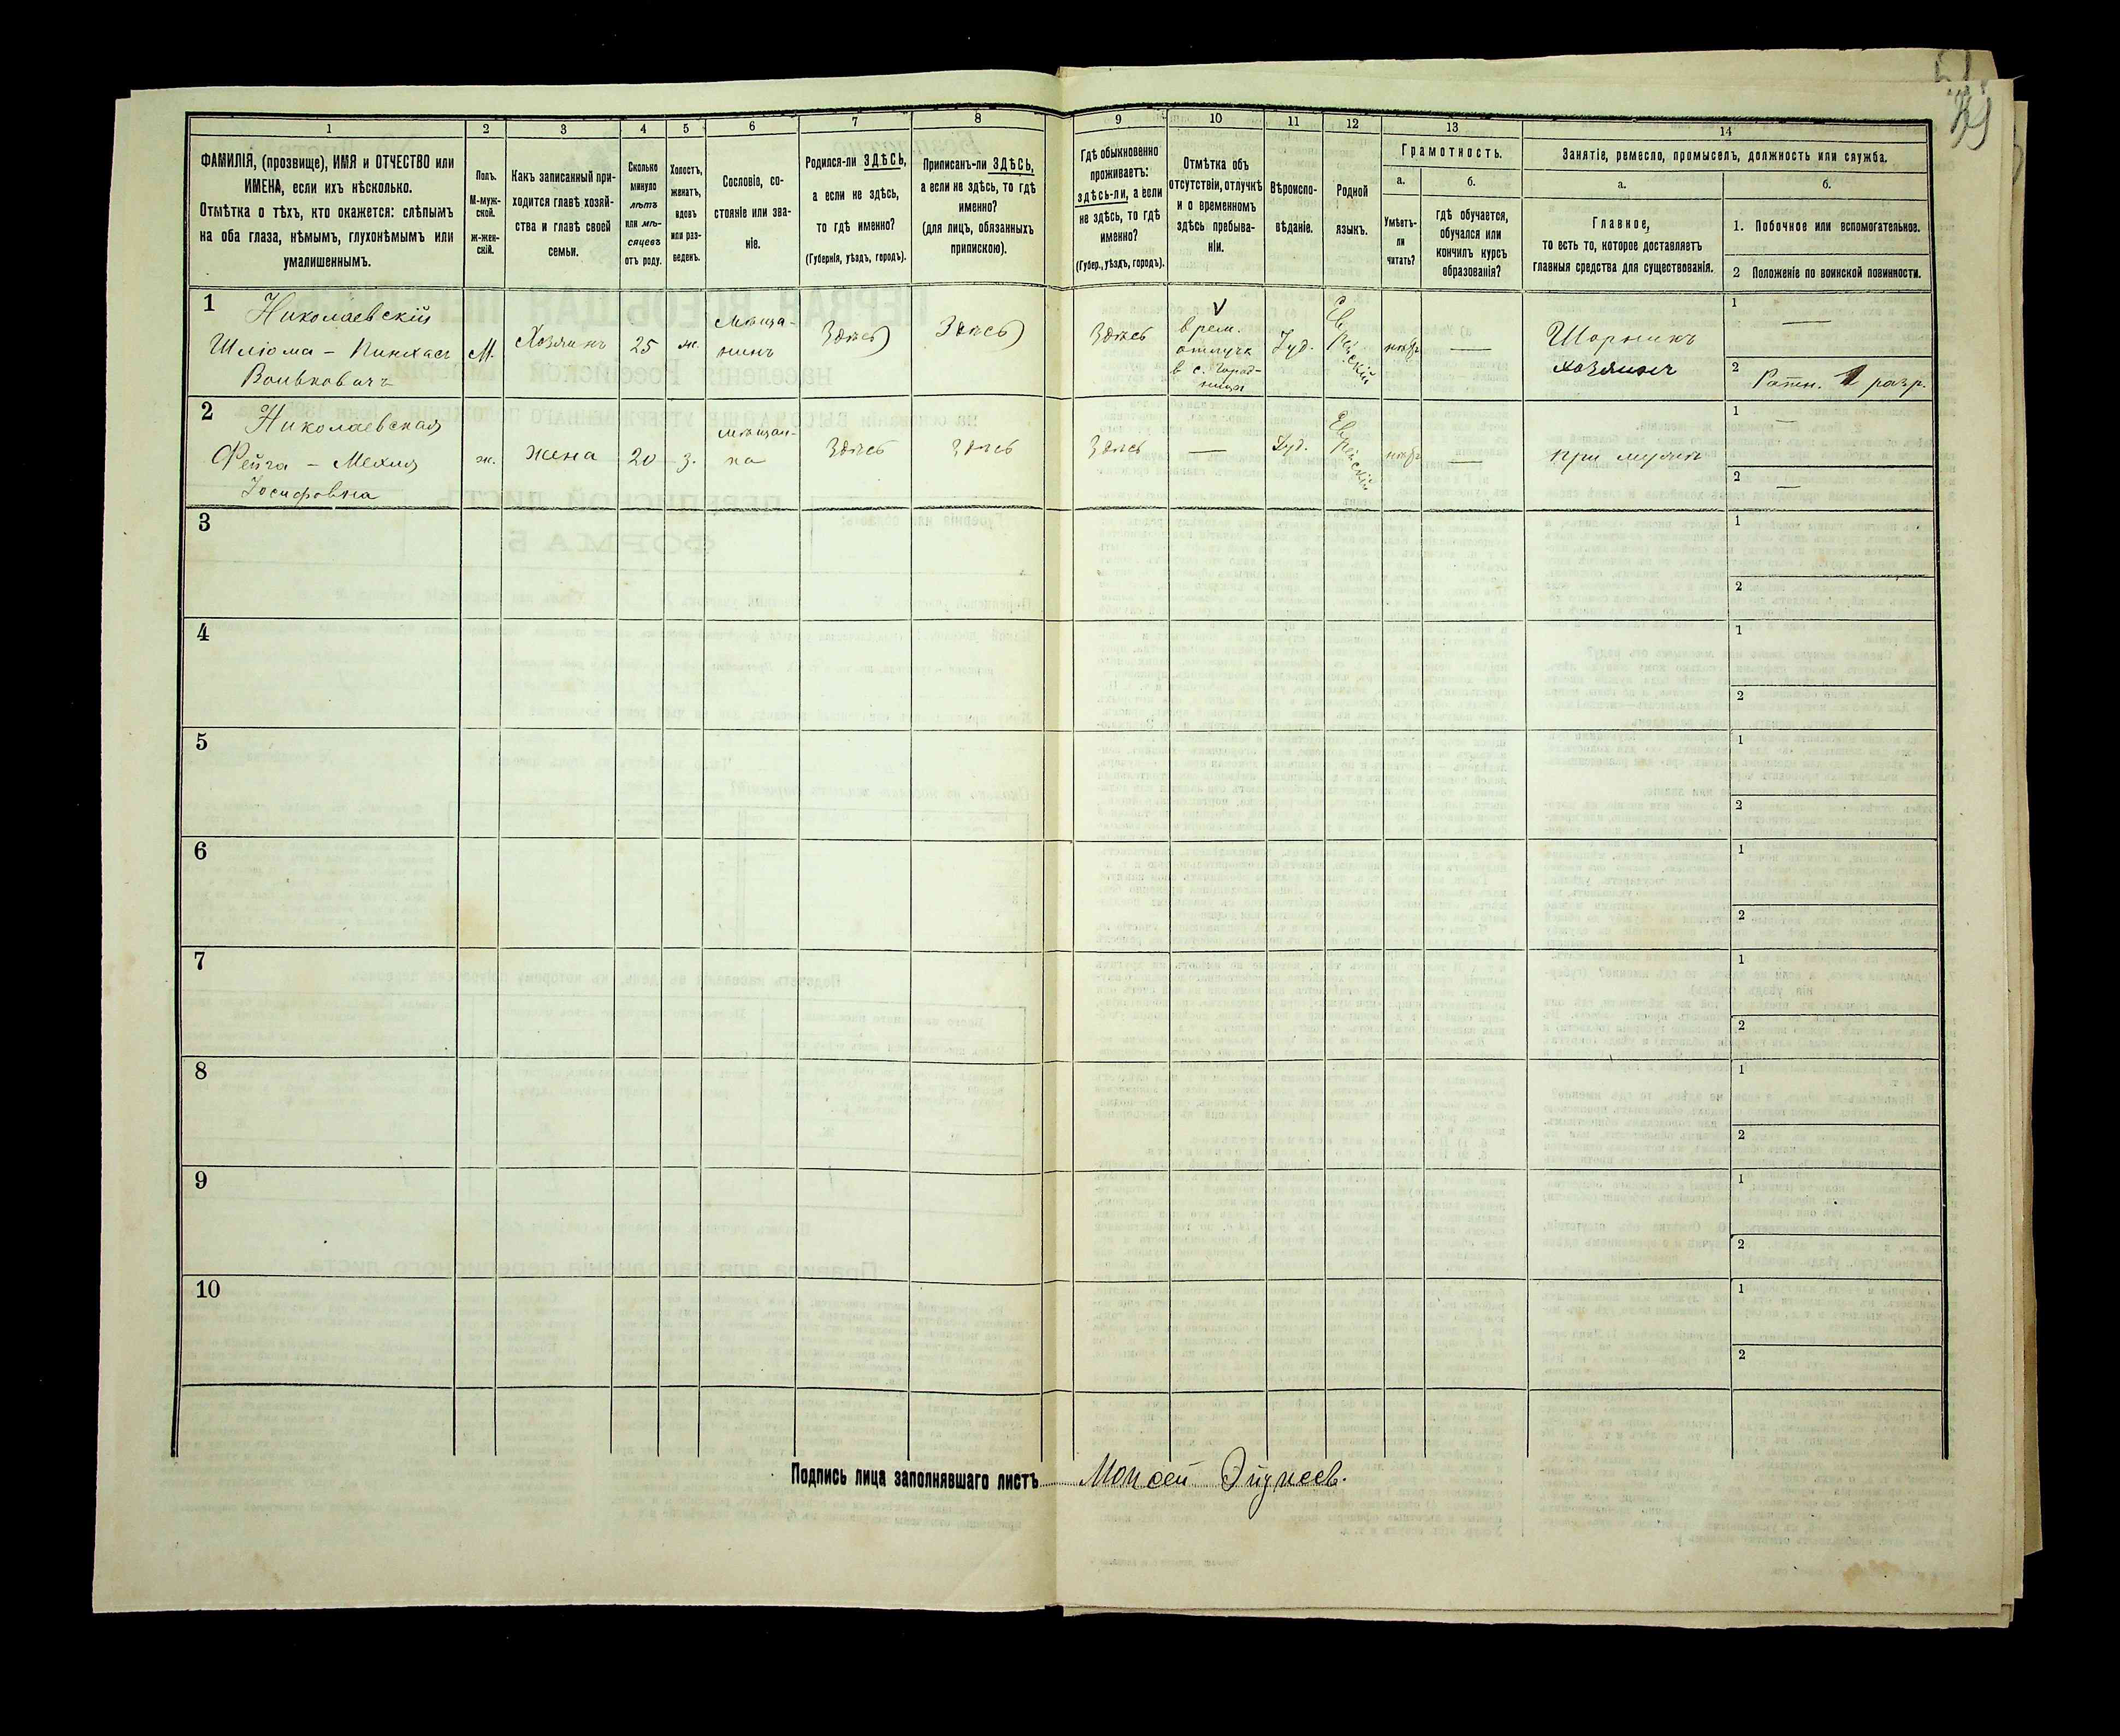 1 2 3 4 5 6 7 8 9 10 11 12 13 14
ФАМИЛІЯ, (прозвище), ИМЯ и ОТЧЕСТВО или
ИМЕНА, если ихъ нѣсколько.
Отмѣтка о тѣхъ, кто окажется: слѣпымъ
на оба глаза, нѣмымъ, глухонѣмымъ или
умалишеннымъ.
Полъ.
М-муж-
ской.
ж-жен-
скій.
Какъ записанный при-
ходится главѣ хозяй-
ства и главѣ своей
семьи.
Сколько
минуло
лѣтъ
или мѣ-
сяцевъ
отъ роду.
Холостъ,
женатъ,
вдовъ
или раз-
веденъ.
Сословіе, со-
стояніе или зва-
ніе.
Родился-ли ЗДѢСЬ,
а если не здѣсь,
то гдѣ именно?
(Губернія, уѣздъ, городъ).
Приписанъ-ли ЗДѢСЬ,
а если не здѣсь, то гдѣ
именно?
(для лицъ, обязанныхъ
припискою).
Гдѣ обыкновенно
проживаетъ:
здѣсь-ли, а если
не здѣсь, то гдѣ
именно?
(Губер., уѣздъ, городъ).
Отмѣтка объ
отсутствіи, отлучкѣ
и о временномъ
здѣсь пребыва-
ніи.
Вѣроиспо-
вѣданіе.
Родной
языкъ.
Грамотность.
а.
Умѣетъ-
ли
читать?
б.
гдѣ обучается,
обучался или
кончилъ курсъ
образованія?
Занятіе, ремесло, промыселъ, должность или служба.
а.
Главное,
то есть то, которое доставляетъ
главныя средства для существованія.
б.
1. Побочное или вспомогательное.
2 Положеніе по воинской повинности.
1
Николаевскій
Шліома - Пинхасъ
Вольковичъ
М.
Хозяинъ
25
ж.
Мѣща-
нинъ
Здѣсь
Здѣсь
Здѣсь
V
врем.
отлуч.
в с. Город-
ница
Іуд.
Еврейскій
нѣтъ
—
Шорникъ
хозяинъ
1 —
2 Ратн. 1 разр.
2
Николаевская
Фейга - Мехля
Іосифовна
ж.
жена
20
з.
мѣщан-
ка
Здѣсь
Здѣсь
Здѣсь
—
Іуд.
Еврейскій
нѣтъ
—
при мужѣ
1 —
2 —
3
1
2
4
1
2
5
1
2
6
1
2
7
1
2
8
1
2
9
1
2
10
1
2
Подпись лица заполнявшаго листъ Моисей